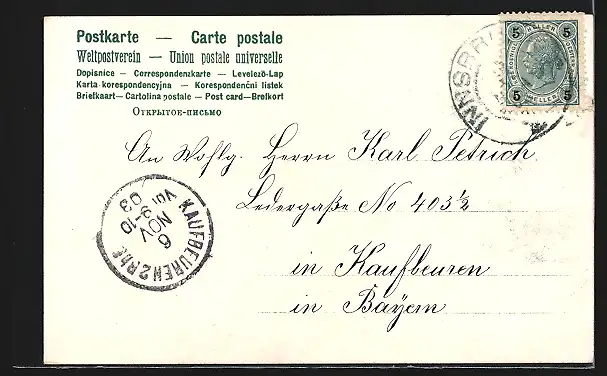 Postkarte — Carte postale
Weltpostverein — Union postale universelle
Dopisnice – Correspondenzkarte – Levelező-Lap
Karta korespondencyjna – Korespondenční lístek
Briefkaart – Cartolina postale – Post card – Brefkort
Открытое-письмо
INNSBR
5 5
HELLER
5 HELLER 5
An Wohlg. Herrn Karl Petrich
Ledergaße No 403½
in Kaufbeuren
in Bayern
KAUFBEUREN 2 Rbf.
6
NOV
9-10
Vor
03